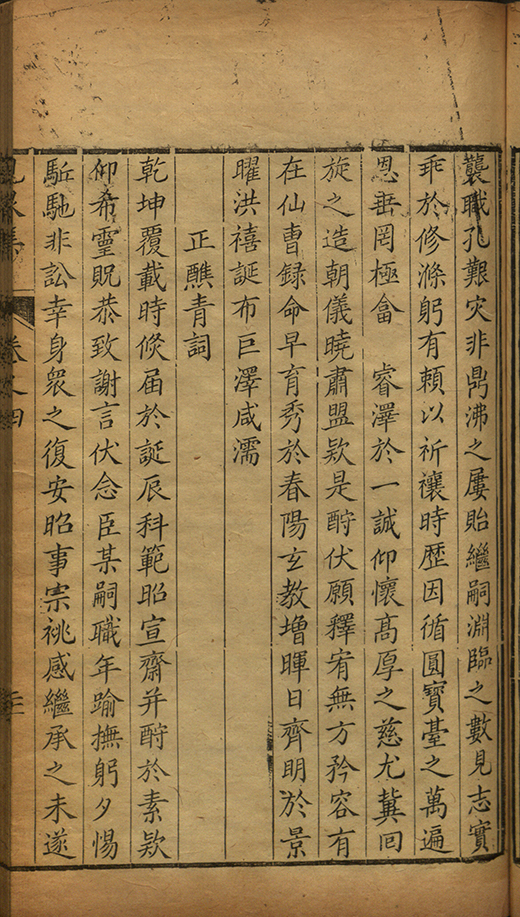 襲職孔艱灾非鼎沸之屢貽繼嗣淵臨之數見志實
乖於修滌躬有賴以祈禳時歷因循圓寶臺之萬遍
恩垂罔極畣　睿澤於一誠仰懷高厚之慈尤冀回
旋之造朝儀曉肅盟欵是酧伏願釋宥無方矜容有
在仙曹録命早育秀於春陽玄教增暉日齊明於景
曜洪禧誕布巨澤咸濡
正醮青詞
乾坤覆載時倐届於誕辰科範昭宣齋并酧於素欵
仰希靈貺恭致謝言伏念臣某嗣職年踰撫躬夕惕
駈馳非訟幸身衆之復安昭事宗祧感繼承之未遂
卷之四